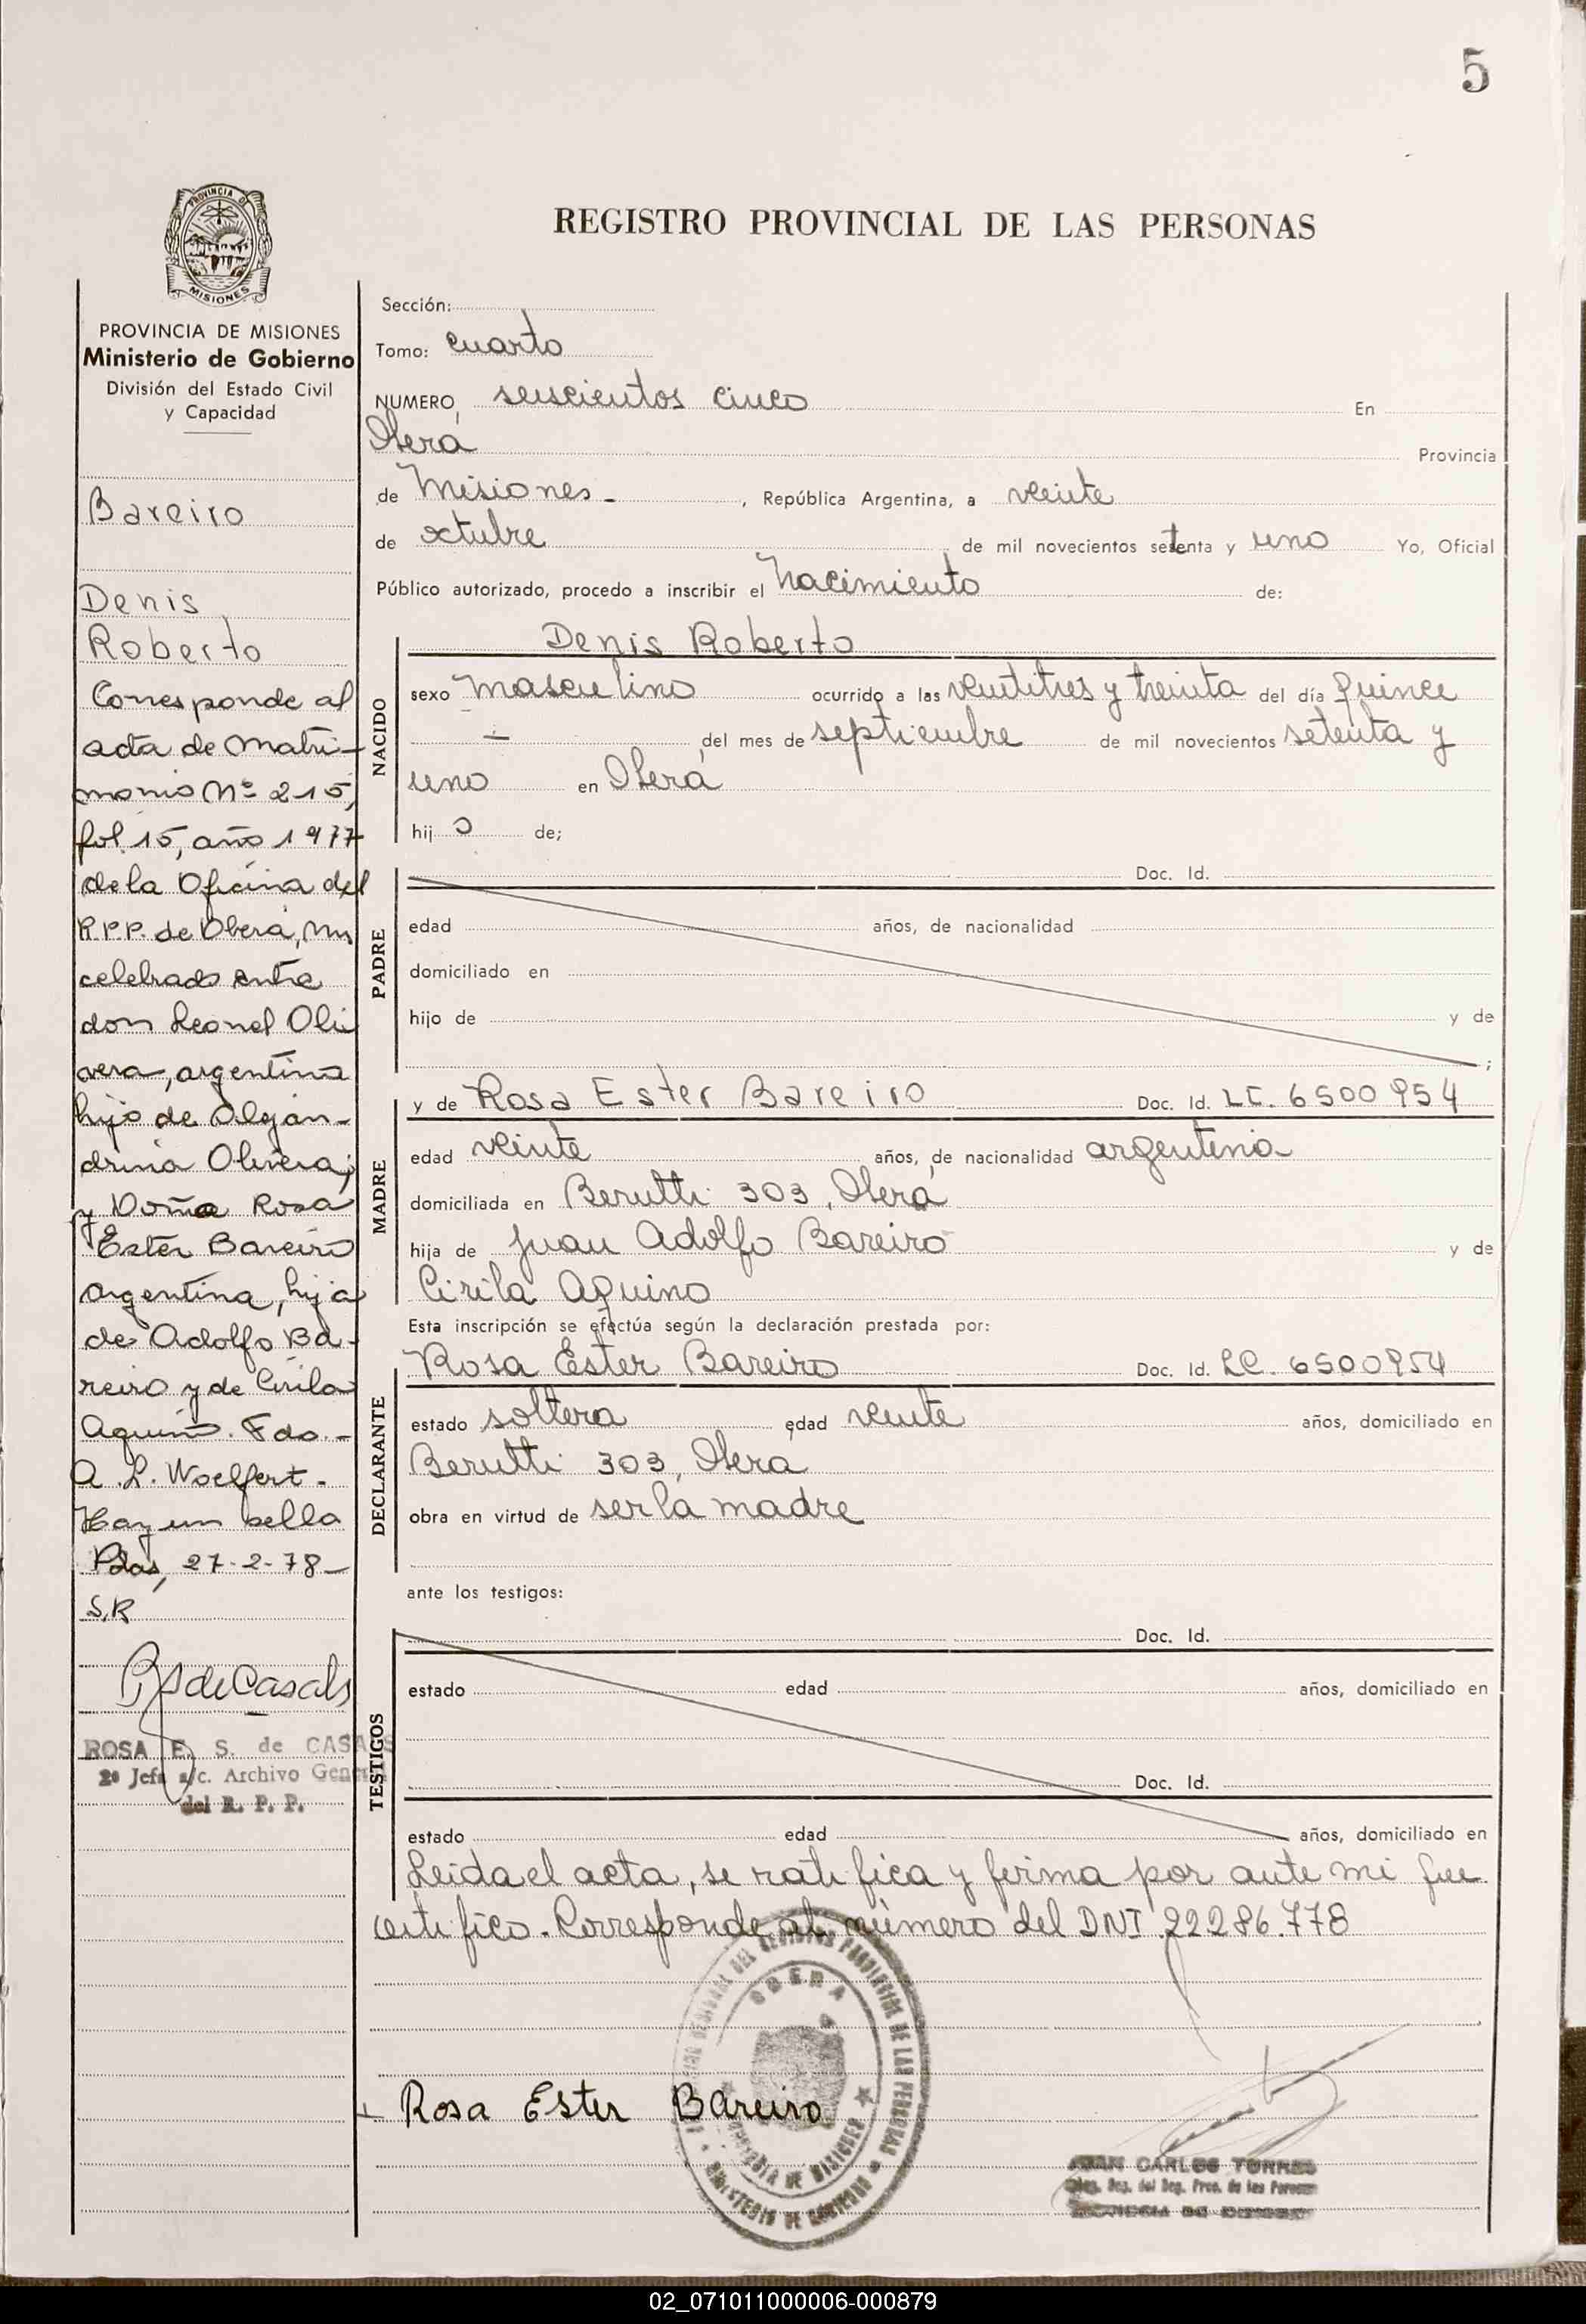 5
REGISTRO PROVINCIAL DE LAS PERSONAS
PROVINCIA DE
MISIONES
PROVINCIA DE MISIONES
Ministerio de Gobierno
División del Estado Civil
y Capacidad
Bareiro
Denis
Roberto
Corresponde al
acta de Matri-
monio Nº 215,
fol. 15, año 1977
de la Oficina del
R.P.P. de Oberá, Mns
celebrado entre
don Leonel Oli
vera, argentina
hijo de Alejan-
drina Olivera;
y Doña Rosa
Ester Bareiro
argentina, hija
de Adolfo Ba-
reiro y de Cirila
Aquino. Fdo.-
A. L. Woelfert.
Hay un sello
Pdas, 27-2-78-
S.R
ROSA E. S. de CASALS
2º Jefa a/c. Archivo General
del R. P. P.
Sección:
Tomo: cuarto
NUMERO, seiscientos cinco En
Oberá Provincia
de Misiones- , República Argentina, a veinte
de octubre de mil novecientos setenta y uno Yo, Oficial
Público autorizado, procedo a inscribir el nacimiento de:
NACIDO
Denis Roberto
sexo masculino ocurrido a las veintitres y treinta del día quince
- del mes de septiembre de mil novecientos setenta y
uno en Oberá
hijo de;
PADRE
Doc. Id.
edad años, de nacionalidad
domiciliado en
hijo de y de
;
MADRE
y de Rosa Ester Bareiro Doc. Id. LC. 6500954
edad veinte años, de nacionalidad argentina
domiciliada en Berutti 303, Oberá
hija de Juan Adolfo Bareiro y de
Cirila Aquino
Esta inscripción se efectúa según la declaración prestada por:
DECLARANTE
Rosa Ester Bareiro Doc. Id. LC. 6500954
estado soltera edad veinte años, domiciliado en
Berutti 303, Oberá
obra en virtud de ser la madre
ante los testigos:
TESTIGOS
Doc. Id.
estado edad años, domiciliado en
Doc. Id.
estado edad años, domiciliado en
Leida el acta, se ratifica y firma por ante mi que
certifico. Corresponde al número del DNI 22286.778
OBERA
Rosa Ester Bareiro
JUAN CARLOS TORRES
02_071011000006-000879